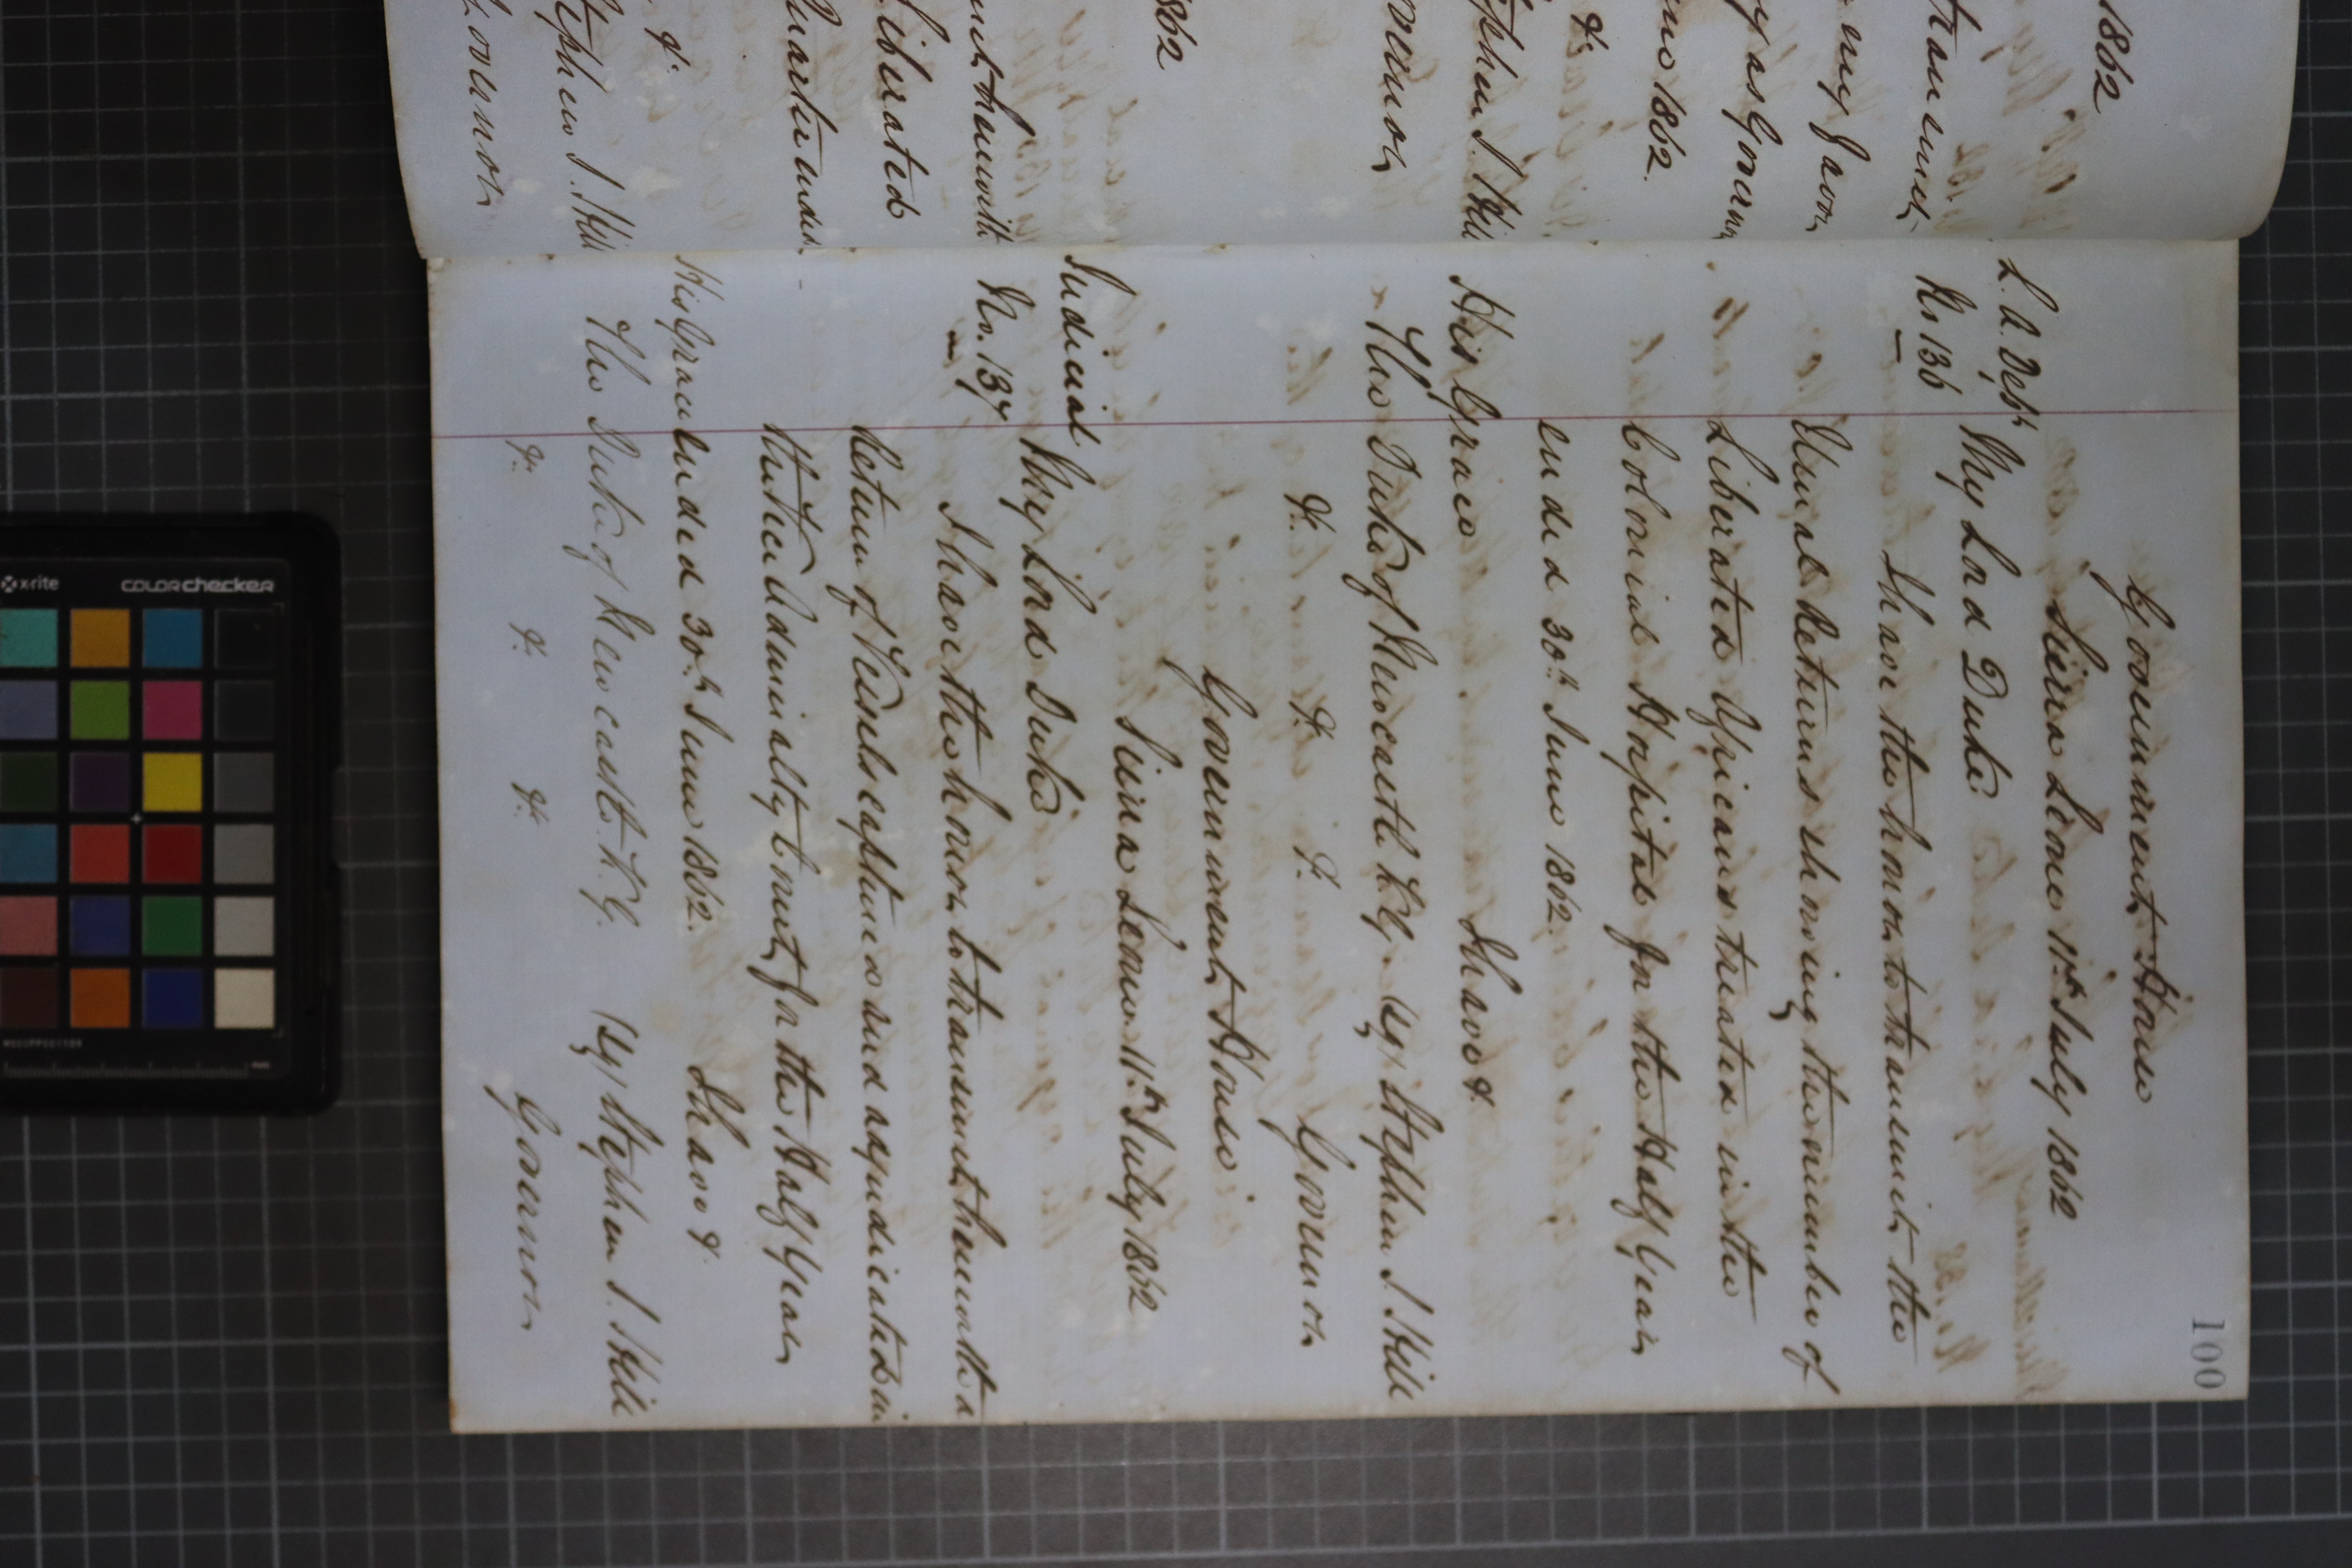 1862
transmit
my favor
y as Govern
une 1862.
&c
Stephen J. Hill
Governor
1862
Liberated
Quarter ended
&c
Stephen J. Hill
Governor
100
Government House
Sierra Leone 11th July 1862
L. A. Dept
No 136
My Lord Duke
I have the honor to transmit the
Usual Returns showing the number of
Liberated Africans treated in the
Colonial Hospital for the Half Year
ended 30th June 1862.
I have &c
His Grace
The Duke of Newcastle K.G. Sg/ Stephen J. Hill
&c &c &c Governor
Government House
Sierra Leone 11th July 1862
Judicial
No. 137
My Lord Duke
I have the honor to transmit herewith a
Return of Vessels captured and adjudicated in
the Vice Admiralty Court for the Half Year
ended 30th June 1862.
I have &c
His Grace
The Duke of Newcastle K.G. Sg/ Stephen J. Hill
&c &c &c Governor
x-rite
colorchecker